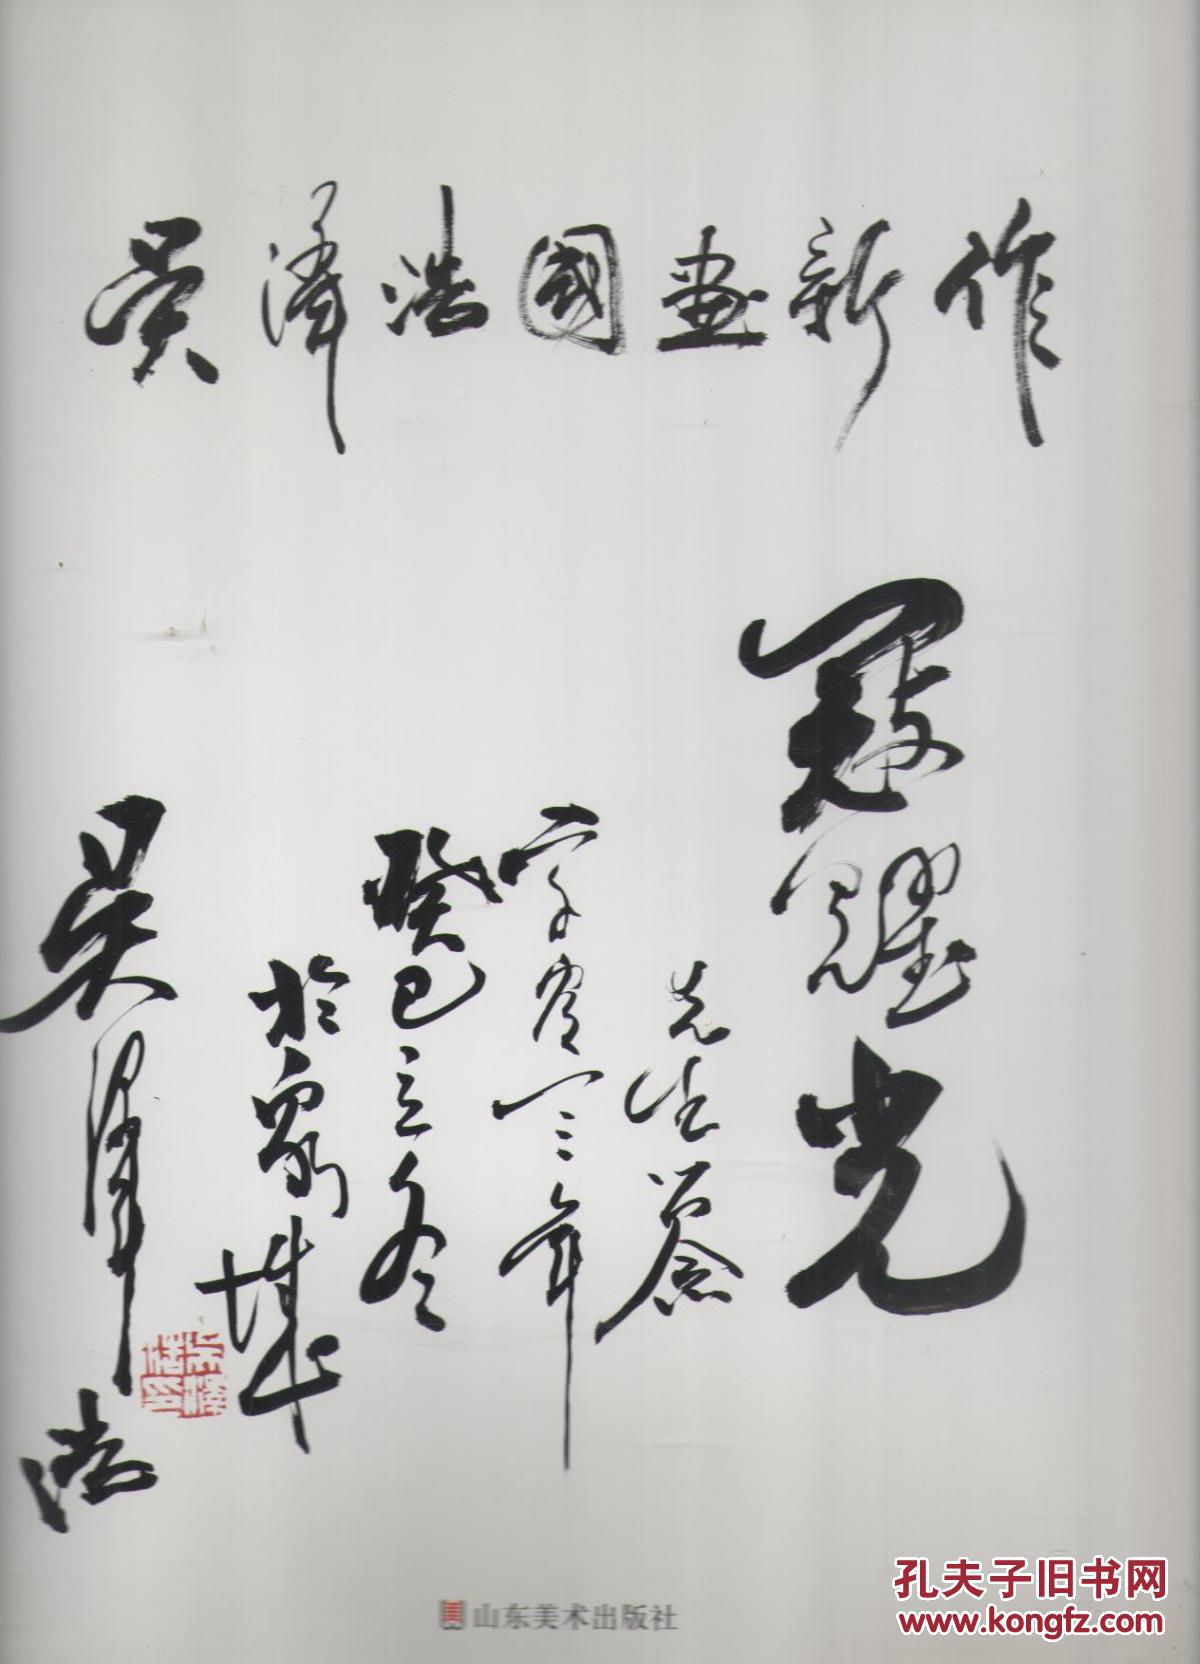 吴泽浩國画新作
寇耀光
先生
年
癸巳立冬
於泉城
吴泽浩
山东美术出版社
孔夫子旧书网
www.kongfz.com